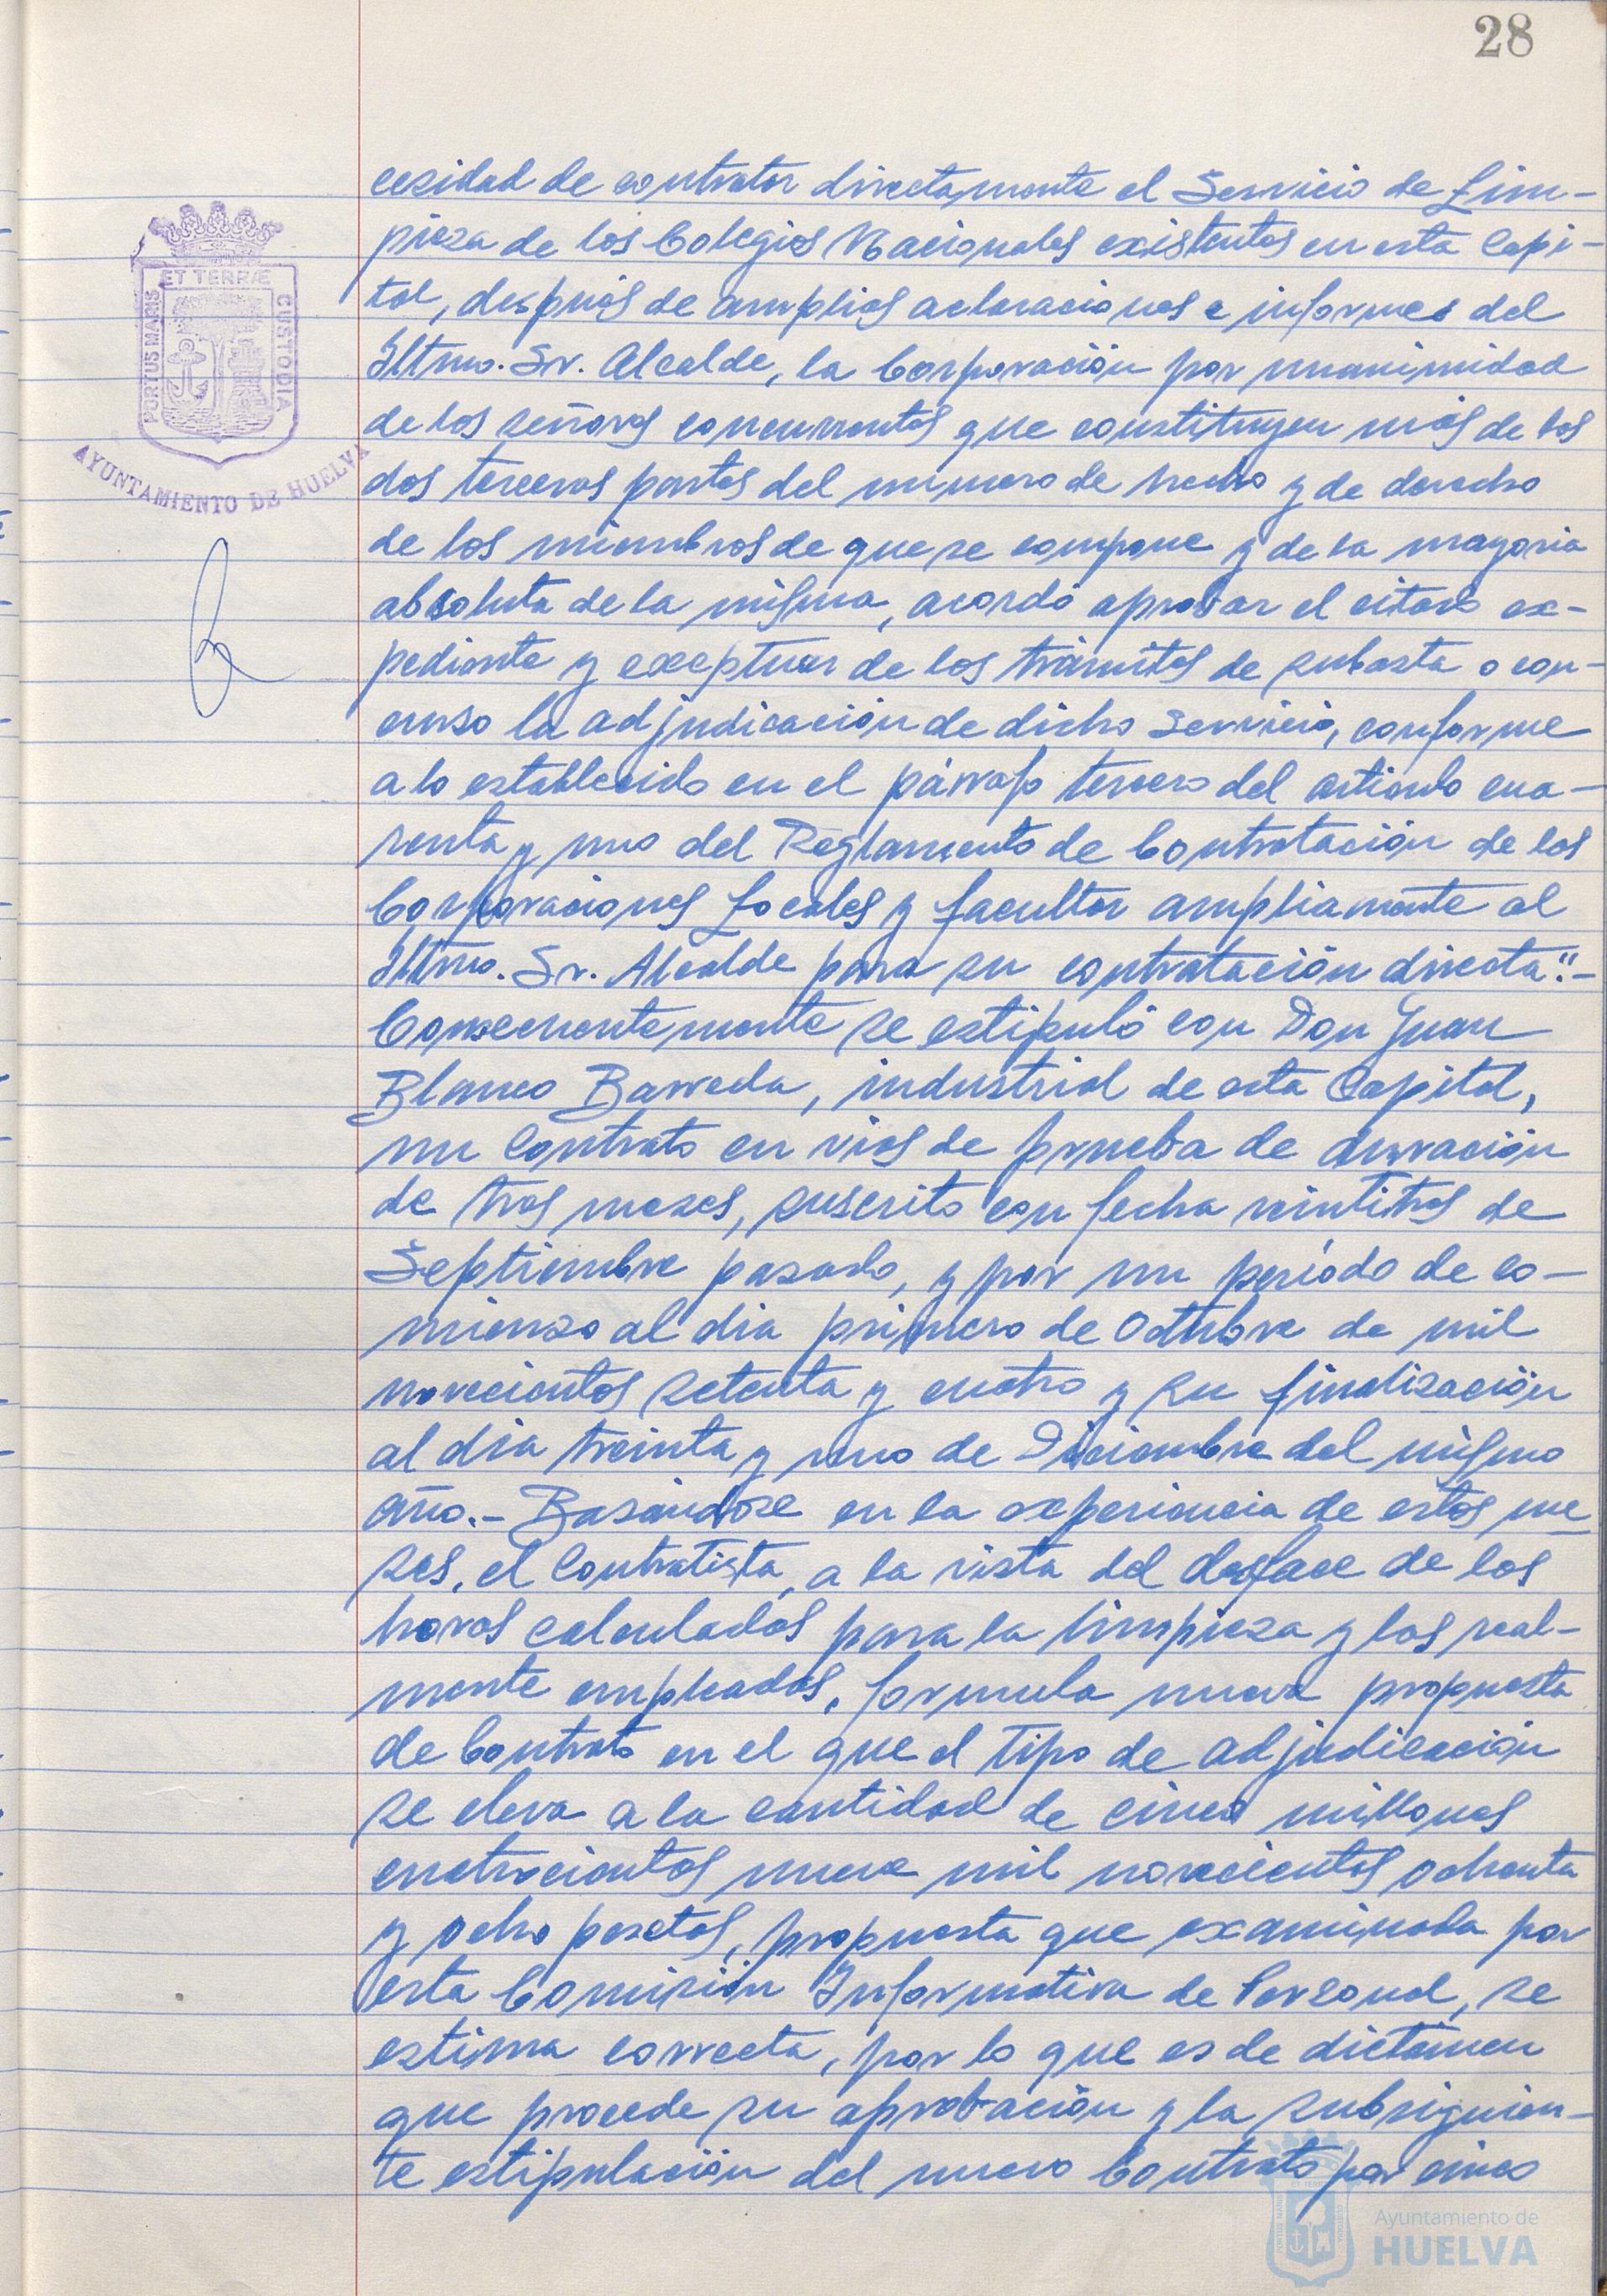 28
cesidad de contratar directamente el Servicio de Lim-
pieza de los Colegios Nacionales existentes en esta Capi-
tal, después de amplias aclaraciones e informes del
Iltmo. Sr. Alcalde, la Corporación por unanimidad
de los señores concurrentes que constituyen más de las
dos terceras partes del número de hecho y de derecho
de los miembros de que se compone y de la mayoria
absoluta de la misma, acordó aprobar el citado ex-
pediente y exceptuar de los trámites de subasta o con-
curso la adjudicación de dicho Servicio, conforme
a lo establecido en el párrafo tercero del artículo cua-
renta y uno del Reglamento de Contratación de las
Corporaciones Locales y facultar ampliamente al
Iltmo. Sr. Alcalde para su contratación directa".-
Consecuentemente se estipuló con Don Juan
Blanco Barreda, industrial de esta Capital,
un Contrato en vias de prueba de duración
de tres meses, suscrito con fecha veintitres de
Septiembre pasado, y por un período de co-
mienzo al dia primero de Octubre de mil
novecientos setenta y cuatro y su finalización
al dia treinta y uno de Diciembre del mismo
año.- Basándose en la experiencia de estos me-
ses, el Contratista, a la vista del desfase de las
horas calculadas para la limpieza y las real-
mente empleadas, formula nueva propuesta
de Contrato en el que el tipo de adjudicación
se eleva a la cantidad de cinco millones
cuatrocientas nueve mil novecientas ochenta
y ocho pesetas, propuesta que examinada por
esta Comisión Informativa de Personal, se
estima correcta, por lo que es de dictamen
que procede su aprobación y la subsiguien-
te estipulación del nuevo Contrato por cinco
PORTUS MARIS
ET TERRÆ
CUSTODIA
AYUNTAMIENTO DE HUELVA
Ayuntamiento de
HUELVA